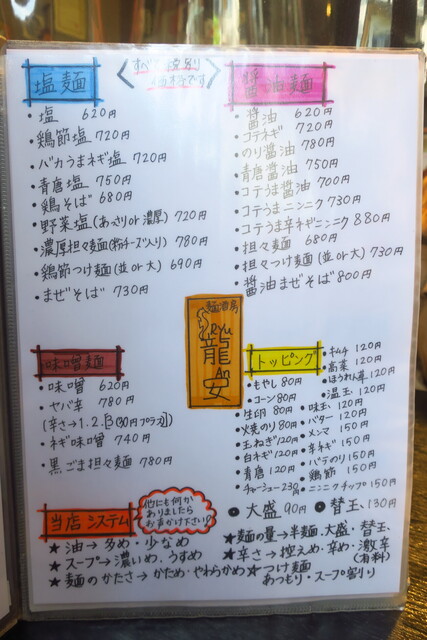 すべて税別価格です
塩麺
・塩 620円
・鶏節塩 720円
・バカうまネギ塩 720円
・青唐塩 750円
・鶏そば 680円
・野菜塩(あさりor濃厚) 720円
・濃厚担々麺(粉チーズ入り) 780円
・鶏節つけ麺(並or大) 690円
・まぜそば 730円
醤油麺
・醤油 620円
・コテネギ 720円
・のり醤油 780円
・青唐醤油 750円
・コテうま醤油 700円
・コテうまニンニク 730円
・コテうま辛ネギニンニク 880円
・担々麺 680円
・担々つけ麺(並or大) 730円
・醤油まぜそば 800円
麺酒房
Ryu
龍
An
安
味噌麺
・味噌 620円
・ヤバ辛 780円
(辛さ→1.2.[3(30円プラス)])
・ネギ味噌 740円
・黒ごま担々麺 780円
トッピング
・もやし 80円
・コーン 80円
・生卵 80円
・焼のり 80円
・玉ねぎ 120円
・白ネギ 120円
・青唐 120円
・チャーシュー 230円
・キムチ 120円
・高菜 120円
・ほうれん草 120円
・温玉 120円
・味玉 120円
・バター 120円
・メンマ 150円
・辛ネギ 150円
・バラのり 150円
・鶏節 150円
・ニンニクチップ 150円
● 大盛 90円 ● 替玉 130円
当店システム
他にも何かありましたらお声かけ下さい!
★油→多め・少なめ
★スープ→濃いめ、うすめ
★麺のかたさ→かため・やわらかめ
★麺の量→半麺、大盛・替玉
★辛さ→控えめ・辛め・激辛(有料)
★つけ麺
あつもり・スープ割り